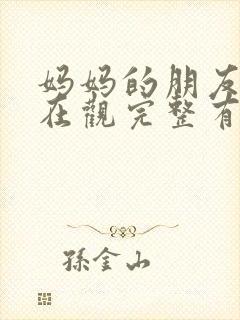 妈妈的朋友
在觀完整有
孫金山